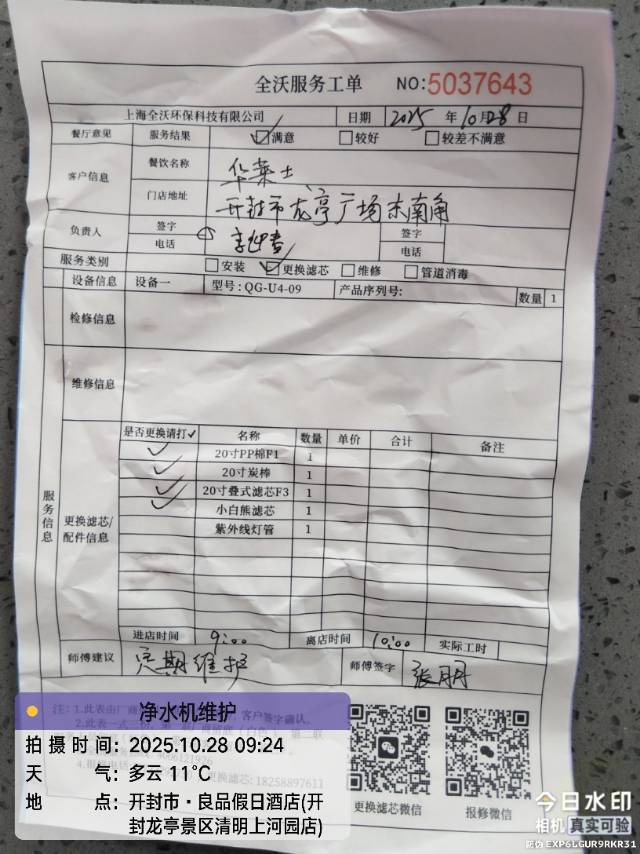 全沃服务工单 NO:5037643
上海全沃环保科技有限公司 日期 2025 年 10 月 28 日
餐厅意见 服务结果 ☑满意 ☐较好 ☐较差不满意
客户信息 餐饮名称 华莱士
门店地址 开封市龙亭广场东南角
负责人 签字 签字
电话 电话
服务类别 ☐安装 ☑更换滤芯 ☐维修 ☐管道消毒
设备信息 设备一 型号:QG-U4-09 产品序列号: 数量 1
检修信息
维修信息
服务信息
更换滤芯/配件信息
是否更换请打✓ 名称 数量 单价 合计 备注
✓ 20寸PP棉F1 1
✓ 20寸炭棒 1
✓ 20寸叠式滤芯F3 1
小白熊滤芯 1
紫外线灯管 1
进店时间 9:00 离店时间 10:00 实际工时
师傅建议 定期维护 师傅签字 张朋
注:1.此表由厂商 客户签字确认。
更换滤芯:18258897611
更换滤芯微信 报修微信
净水机维护
拍摄时间:2025.10.28 09:24
天气:多云 11℃
地点:开封市·良品假日酒店(开
封龙亭景区清明上河园店)
今日水印
相机 真实可验
防伪 EXP6LGUR9RKR31